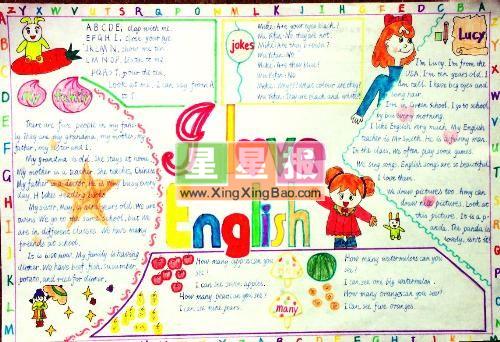 ABCDE, clap with me.
EFGHI,
JKLMN, show me ten
LMNOP, listen to me
Look at me, I can say from A
to Z
jokes
Mike: Are your eyes black?
Wu Yifan: No they're not.
Wu Yifan: No
Mike: Are they blue?
Wu Yifan: No
Mike: Why?! What colour are they?
Wu Yifan: They are black and white!
Lucy
I'm Lucy. I'm from the
USA. I'm ten years old. I
am tall. I have big eyes and
long hair.
I'm in Green school. I go to school
by bus every morning.
I like English very much. My English
teacher is Mr. Black. He is a funny man.
In the class, we often play some games.
We sing songs. English songs are so beautiful.
I love them.
We draw pictures too. Amy can
draw nice pictures. Look at
this picture. It is a
panda. The panda is
lovely, isn't it?
My family
There are five people in my fami-
ly. They are my grandma, my mother, my
father, my sister and I.
My grandma is old. She stays at home.
My mother is a teacher. She teaches Chinese.
My father is a doctor. He is very busy every
day. He likes reading books.
My sister, Mary, is years old. We are
twins. We go to the same school, but we
are in different classes. We have many
friends at school.
It is My family is having
dinner. We have beef, fish, cucumber,
potato, and rice for dinner.
I love
English
星星报
www.XingXingBao.com
How many apples can you
see?
I can see seven apples.
How many pears can you see?
I can see nine pears.
How many
How many watermelons can you
see?
I can see one big watermelon.
How many oranges can you see?
I can see five oranges.